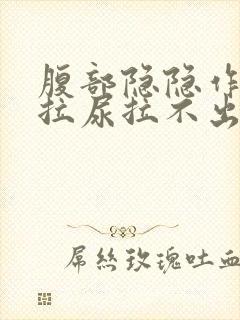 腹部隐隐作
拉尿拉不出
屌丝玫瑰吐血